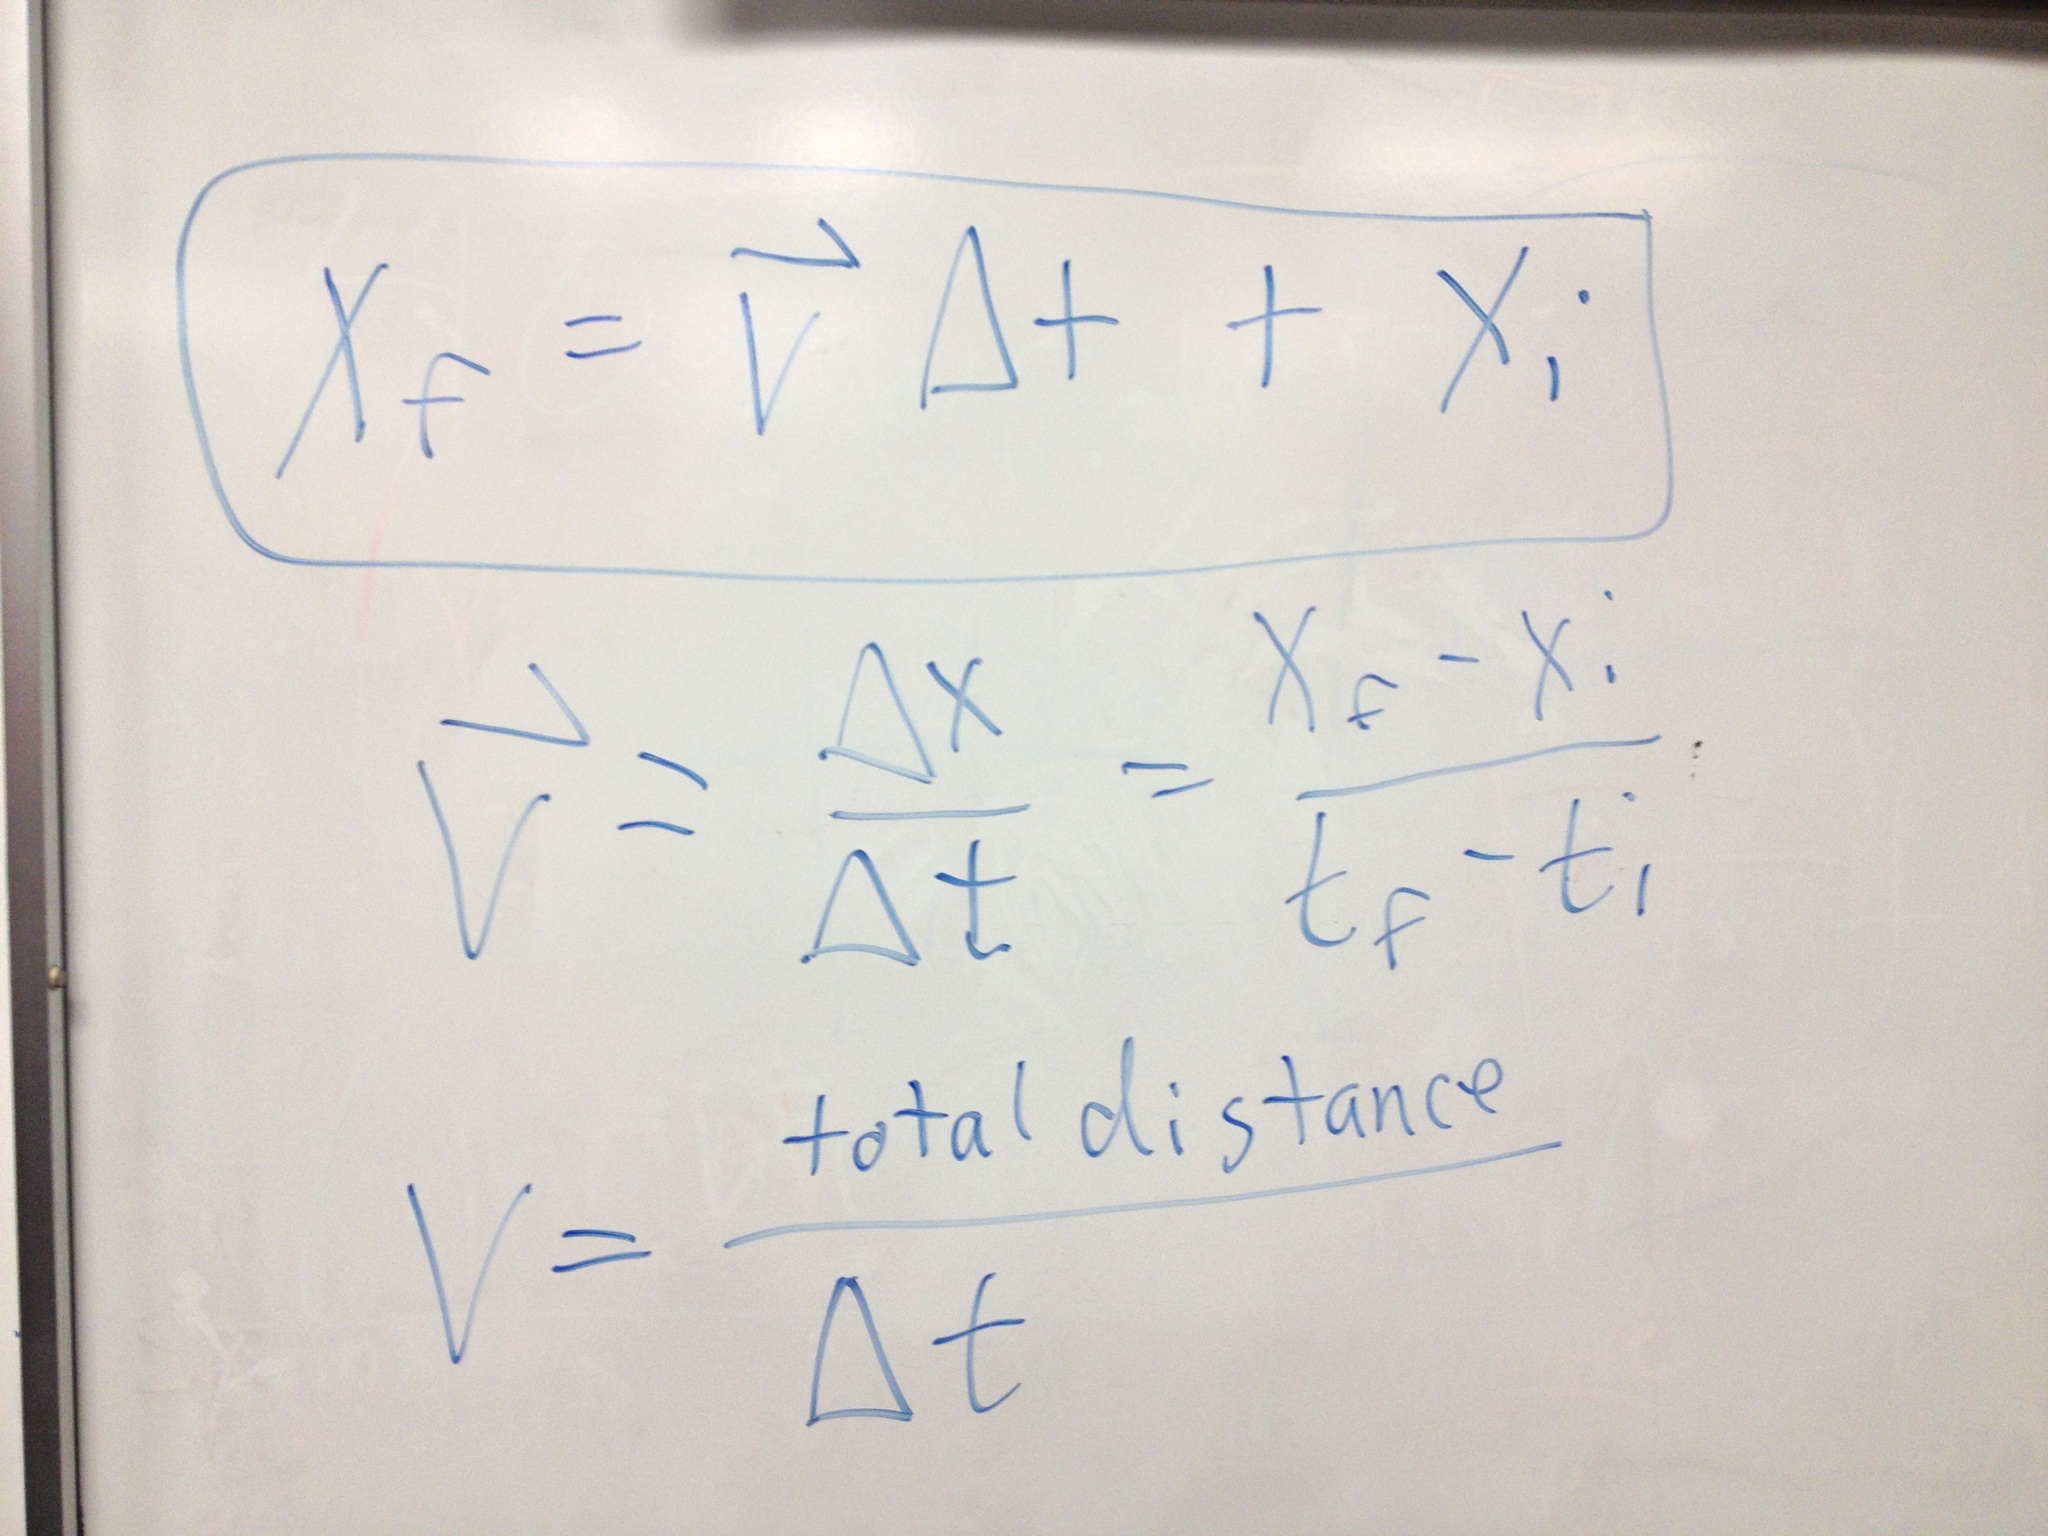 X_f = v⃗ Δt + X_i
v⃗ = Δx/Δt = (x_f - x_i)/(t_f - t_i)
V = total distance/Δt